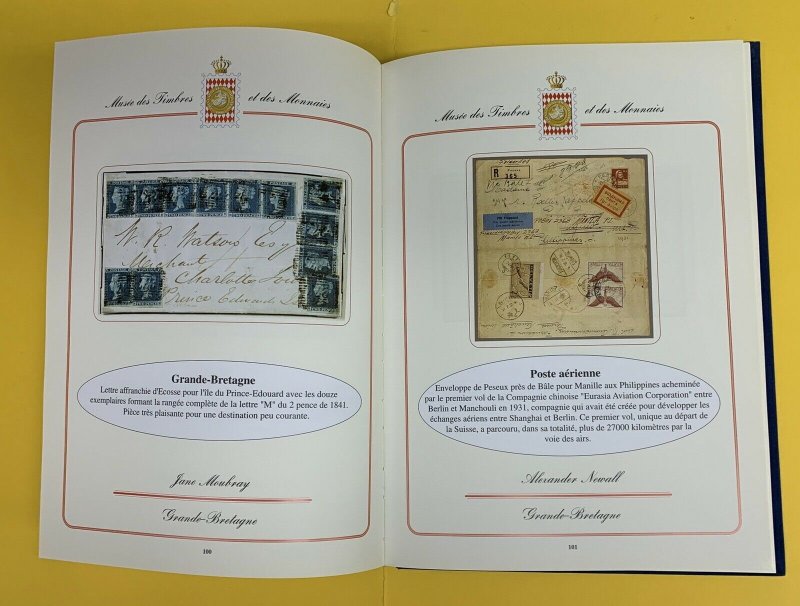 Musée des Timbres et des Monnaies
POSTAGE
TWO PENCE
W. R. Watson Esq
Merchant
Charlotte
Prince Edwards
Grande-Bretagne
Lettre affranchie d'Ecosse pour l'île du Prince-Edouard avec les douze
exemplaires formant la rangée complète de la lettre "M" du 2 pence de 1841.
Pièce très plaisante pour une destination peu courante.
Jane Moubray
Grande-Bretagne
100
Musée des Timbres et des Monnaies
R
365
Philippines
Poste aérienne
Enveloppe de Peseux près de Bâle pour Manille aux Philippines acheminée
par le premier vol de la Compagnie chinoise "Eurasia Aviation Corporation" entre
Berlin et Manchouli en 1931, compagnie qui avait été créée pour développer les
échanges aériens entre Shanghai et Berlin. Ce premier vol, unique au départ de
la Suisse, a parcouru, dans sa totalité, plus de 27000 kilomètres par la
voie des airs.
Alexander Newall
Grande-Bretagne
101